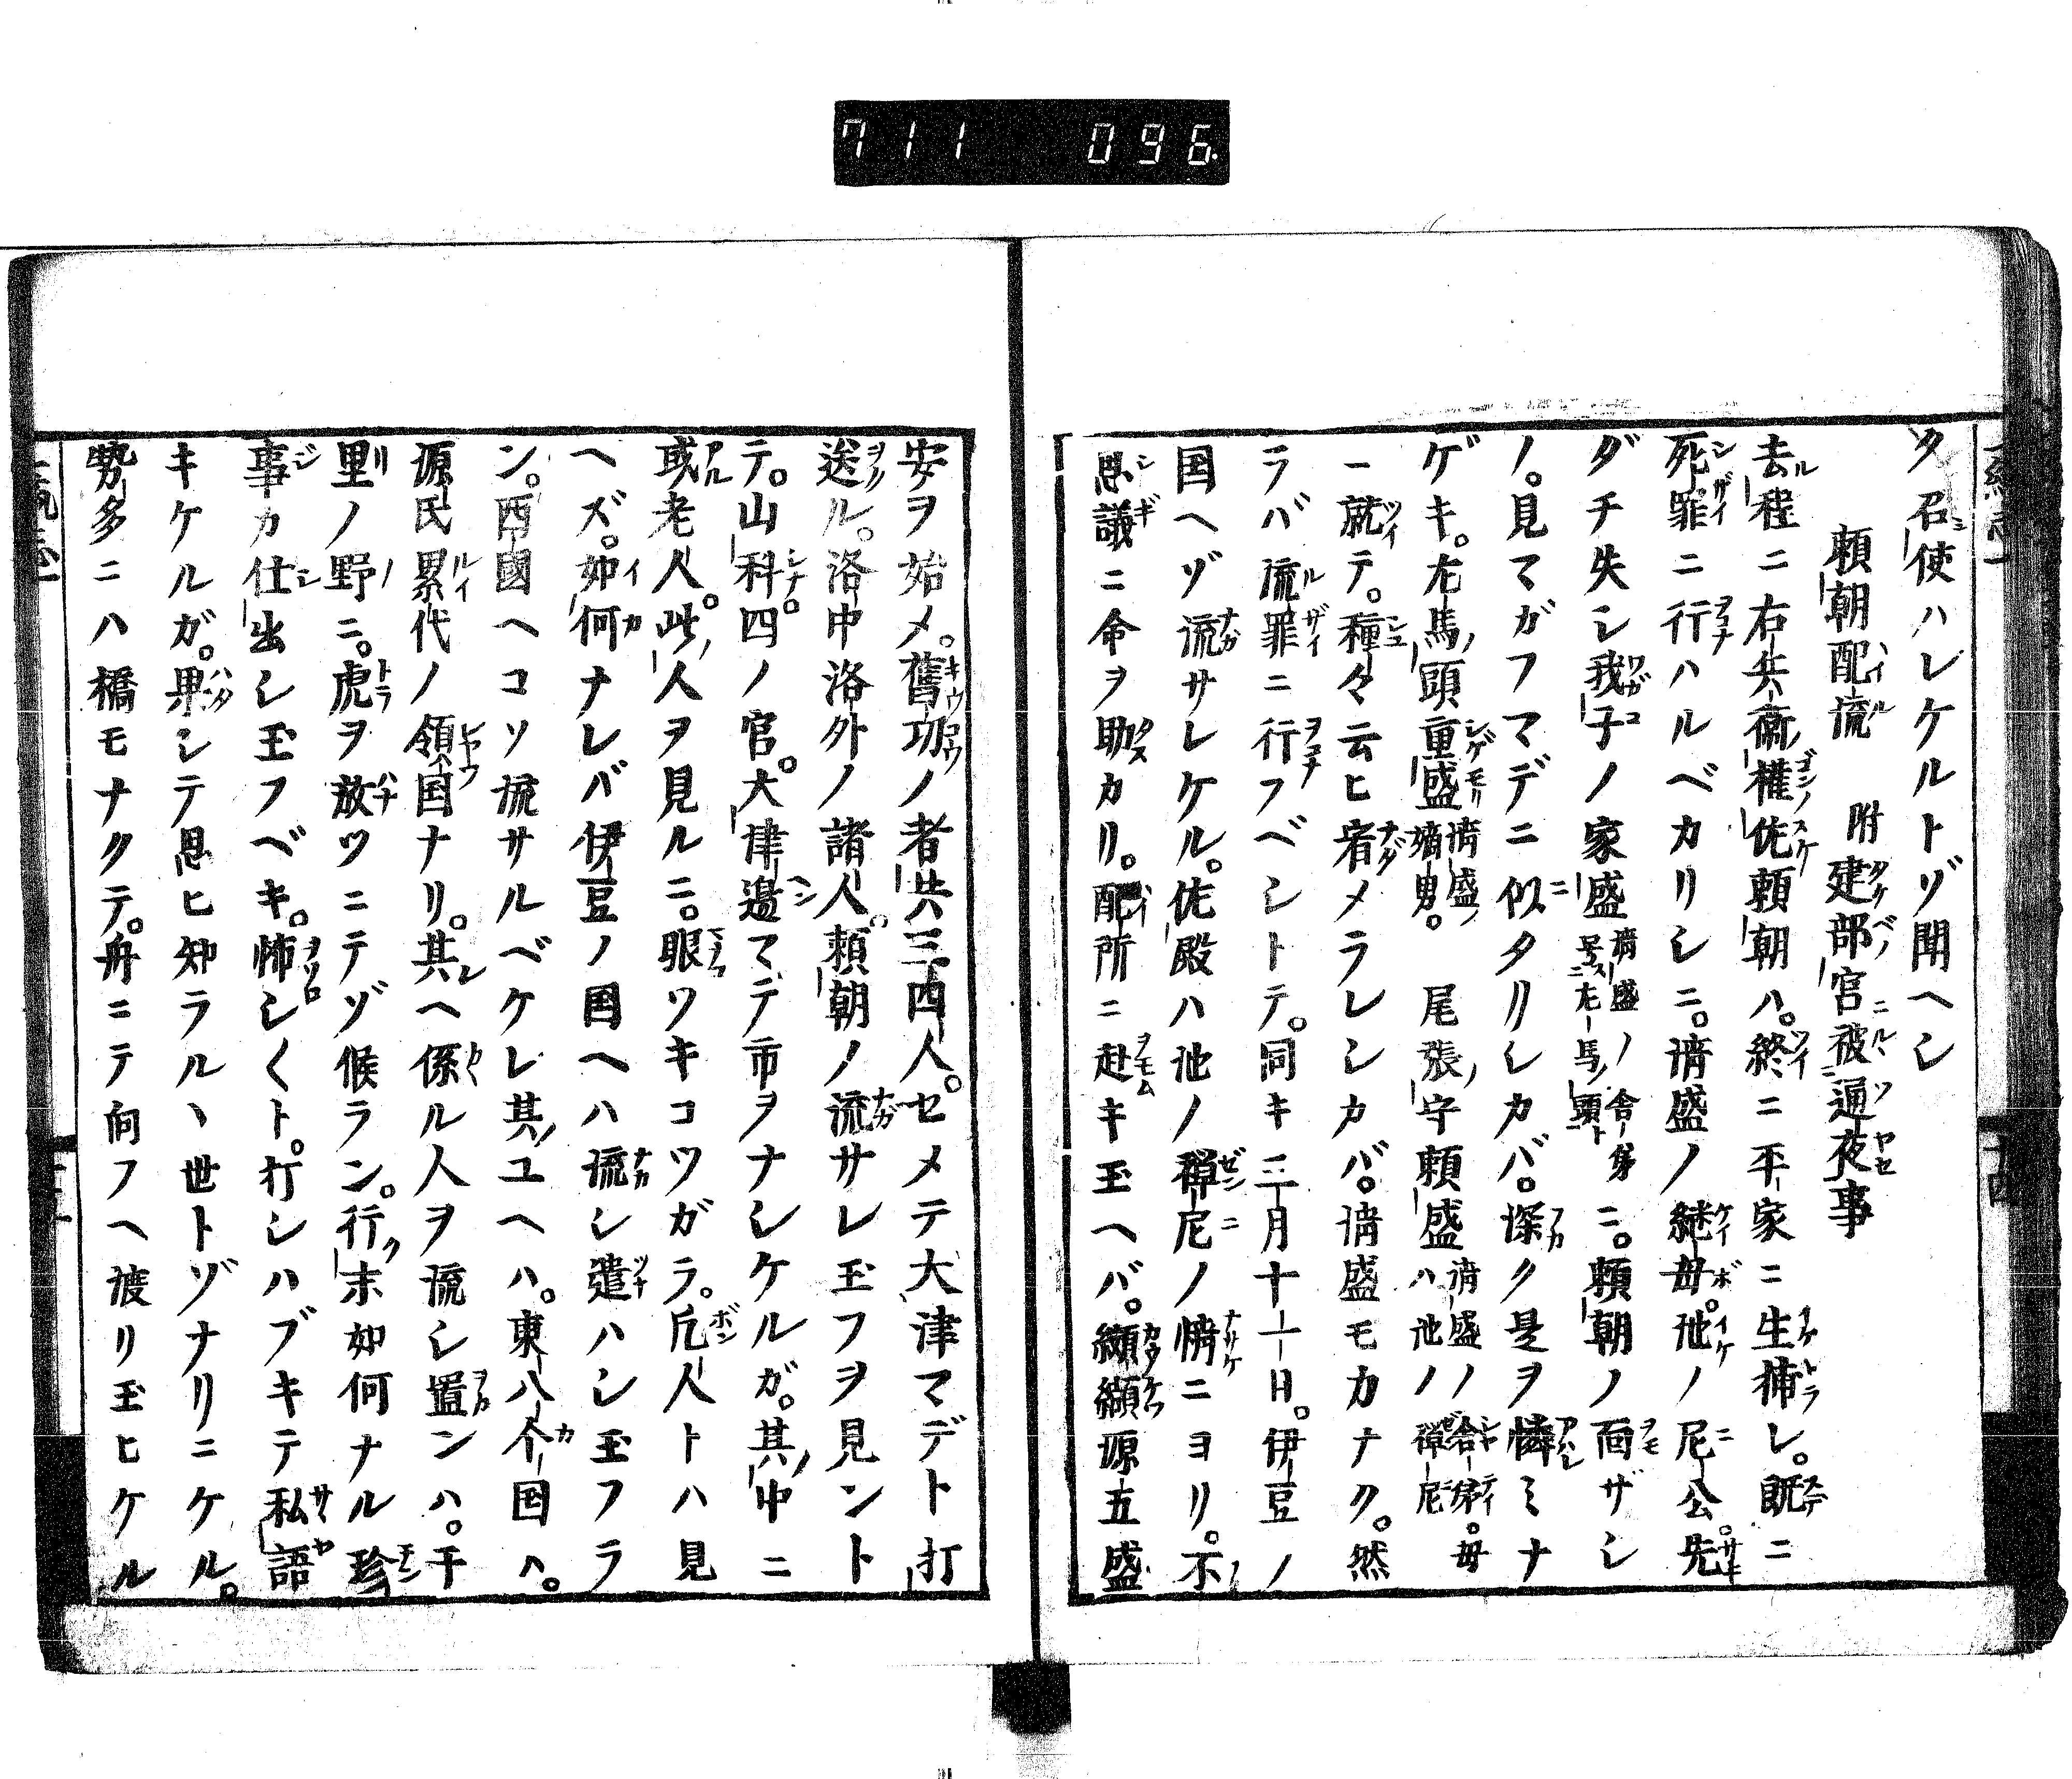 711 096
タ召使ハレケルトゾ聞ヘシ
頼朝配流 附建部官被通夜事
去程ニ右兵衛権佐頼朝ハ。終ニ平家ニ生捕レ。既ニ
死罪ニ行ハルベカリシニ。清盛ノ継母。池ノ尼公。先
ダチ失シ我子ノ家盛清盛ノ舎弟号左馬頭ニ。頼朝ノ面ザシ
ノ。見マガフマデニ似タリシカバ。深ク是ヲ憐ミナ
ゲキ。左馬頭重盛清盛ノ嫡男。尾張守頼盛清盛ノ舎弟。母ハ池ノ禅尼
ニ就テ。種々云ヒ宥メラレシカバ。清盛モカナク。然
ラバ流罪ニ行フベシトテ。同キ三月十一日。伊豆ノ
国ヘゾ流サレケル。佐殿ハ池ノ禅尼ノ情ニヨリ。不
思議ニ命ヲ助カリ。配所ニ赴キ玉ヘバ。纐纈源五盛
安ヲ始メ。舊功ノ者共三四人。セメテ大津マデト打
送ル。洛中洛外ノ諸人。頼朝ノ流サレ玉フヲ見ント
テ。山科。四ノ宮。大津邉マデ市ヲナシケルガ。其中ニ
或老人。此人ヲ見ルニ。眼ツキコツガラ。凡人トハ見
ヘズ。如何ナレバ伊豆ノ国ヘハ流シ遣ハシ玉フラ
ン。西國ヘコソ流サルベケレ其ユヘハ。東八ヶ国ハ。
源氏累代ノ領国ナリ。其ヘ係ル人ヲ流シ置ンハ。千
里ノ野ニ。虎ヲ放ツニテゾ候ラン。行末如何ナル珍
事カ仕出シ玉フベキ。怖シ〱ト。打シハブキテ私語
キケルガ。果シテ思ヒ知ラルヽ世トゾナリニケル。
勢多ニハ橋モナクテ。舟ニテ向フヘ渡リ玉ヒケル